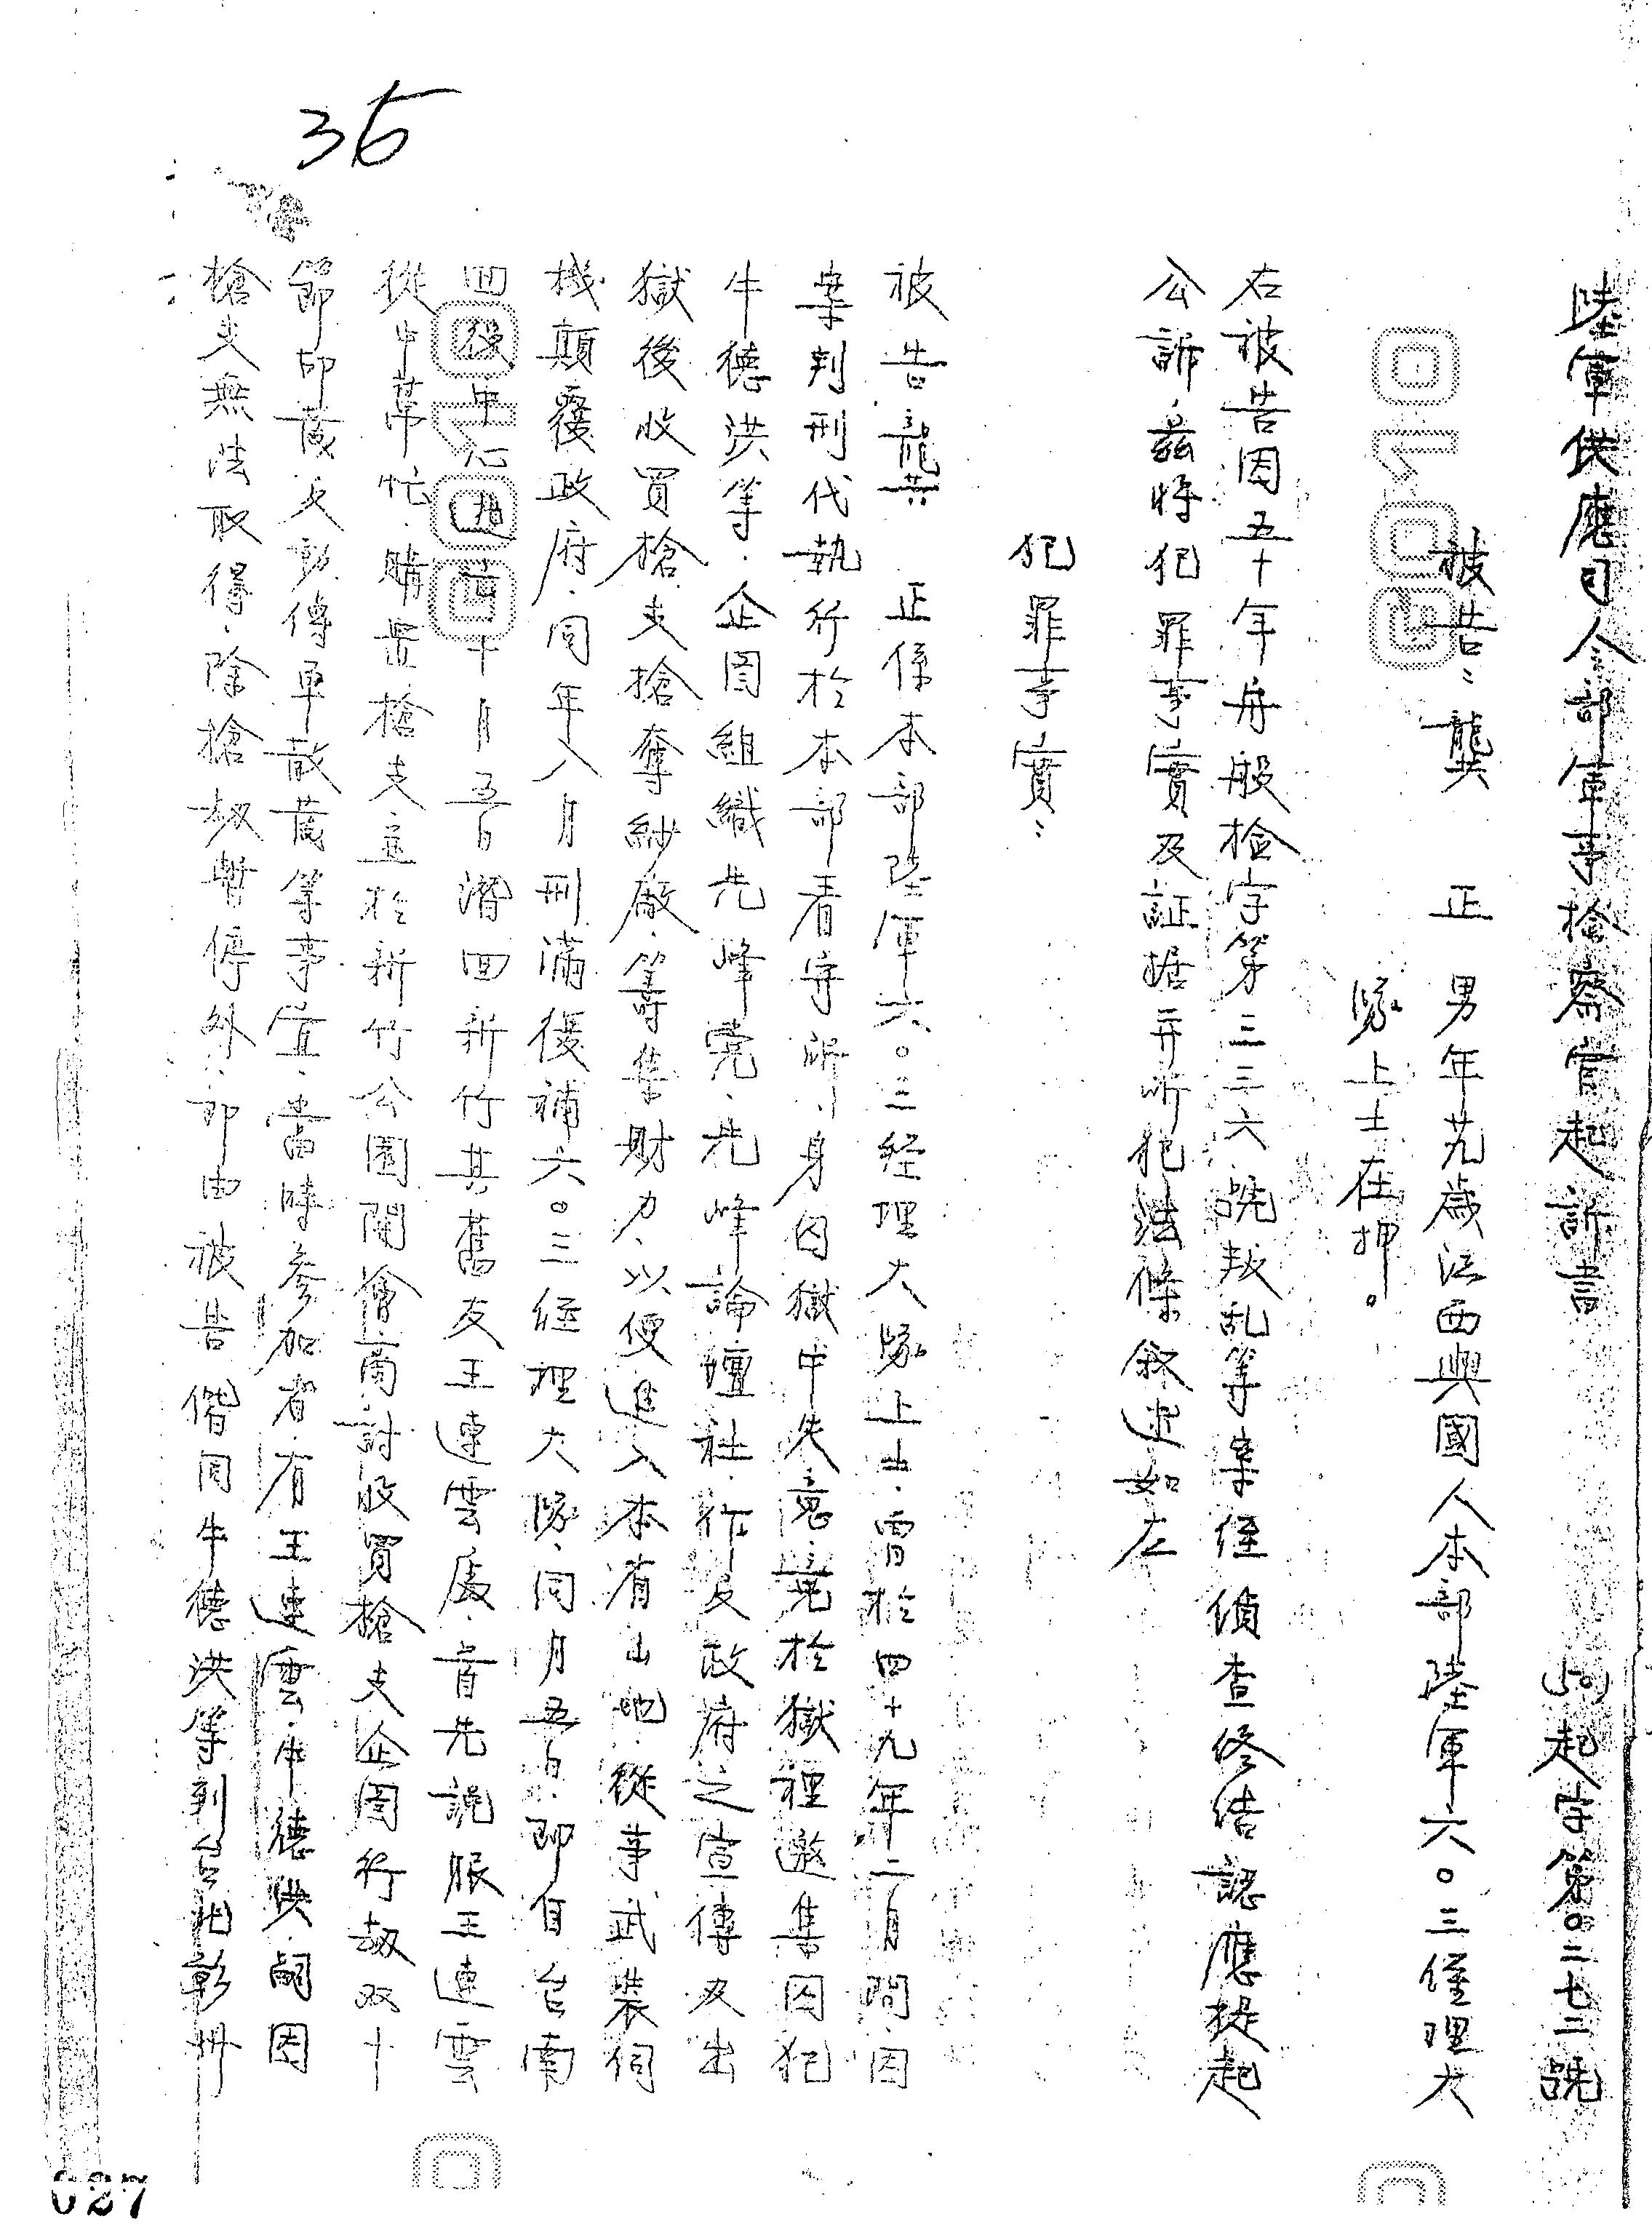 35
陸軍供應司令部軍事檢察官起訴書
(50)起字第〇二七二號
被告:龔 正 男年艽歲江西興國人本部陸軍六〇三經理大
隊上士在押。
右被告因五十年舟般檢字第三三六號叛乱等案經偵查終結認應提起
公訴,茲將犯罪事實及証據并所犯法條敘述如左
犯罪事實:
被告龔 正係本部陸軍六〇三經理大隊上士,曾於四十九年二月間,因
案判刑代執行於本部看守所,身囚獄中失意,竟於獄裡邀集囚犯
牛德洪等,企圖組織先峰党,先峰論壇社,作反政府之宣傳及出
獄後收買槍支槍奪紗廠,籌集財力,以便進入本省山地,從事武裝伺
機顛覆政府,同年八月刑滿後補六〇三經理大隊,同月五日,即自台南
回 中心 十月五日潛回新竹其舊友王連雲處,首先說服王連雲
從中帮忙,購置槍支並於新竹公園開會商討收買槍支企圖行劫双十
節印製反動傳單散發等事宜,當時參加者,有王連雲,牛德洪,嗣因
槍支無法取得,除槍劫暫停外,即由被告偕同牛德洪等到台北彰卅
027